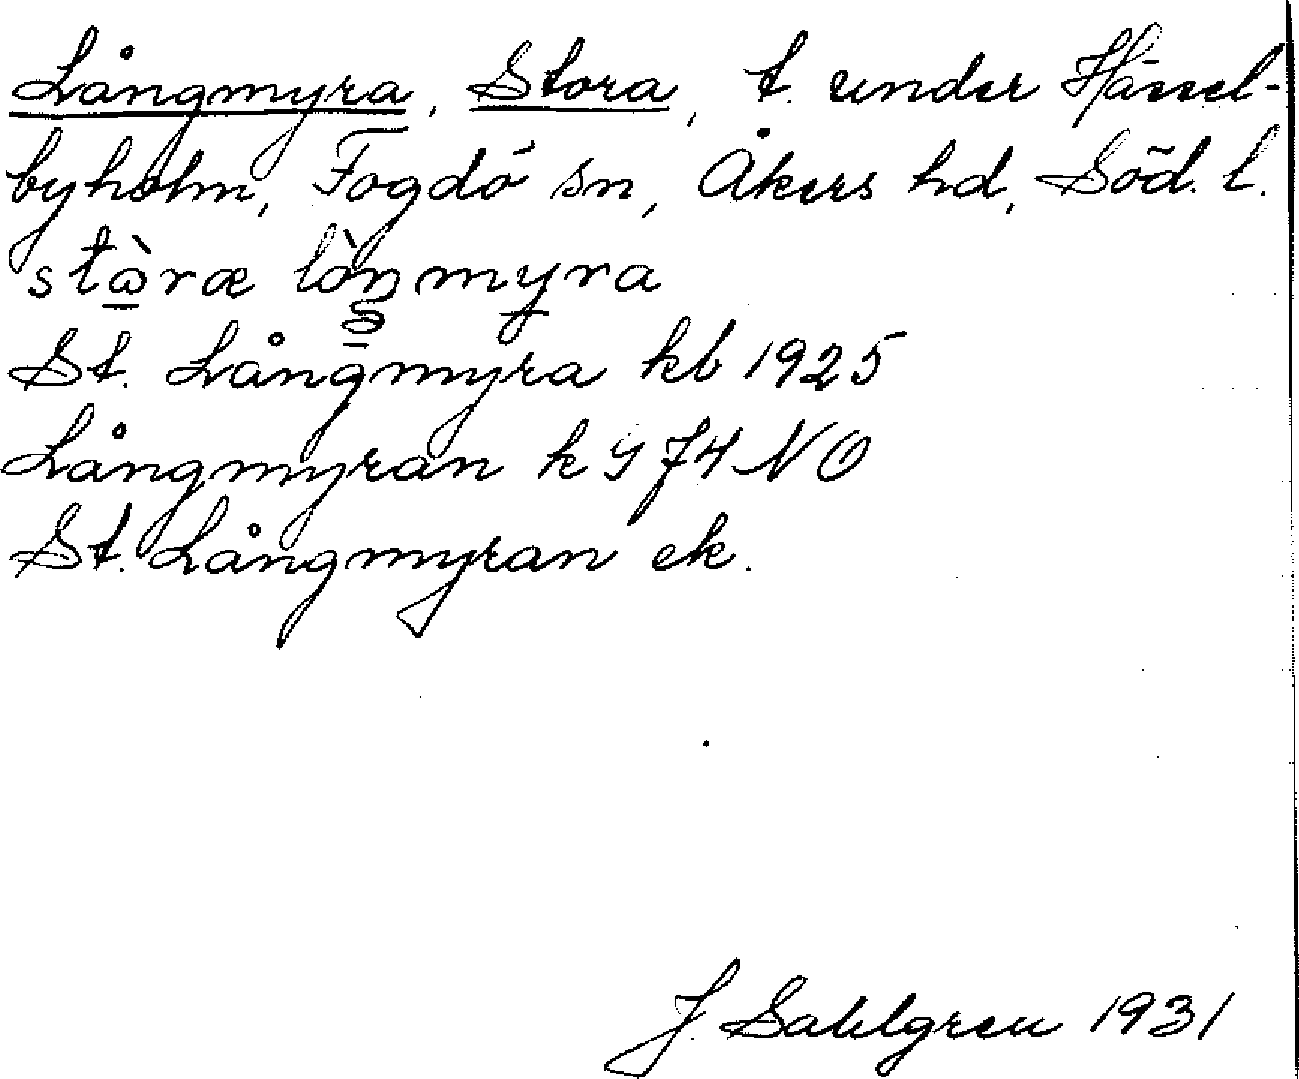 Långmyra, Stora, t. under Hässel-
byholm, Fogdö sn, Åkers hd, Söd. l.
stὼræ lòŋmyra
St. Långmyra kb 1925
Långmyran k 974 NO
St. Långmyran ek.
J. Sahlgren 1931